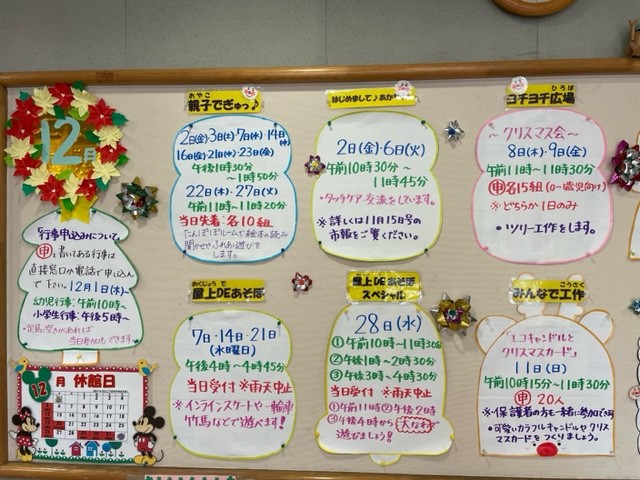 12月
行事申込みについて。
申と書いてある行事は
直接窓口か電話で申し込ん
で下さい。12月1日(木)〜
幼児行事:午前10時〜
小学生行事:午後5時〜
当日参加もできます。
12月 休館日
おやこ
親子でぎゅっ♪
2日(金)・3日(土)・7日(水)・14日(水)
16日(金)・21日(水)・23日(金)
午後1時30分
〜1時50分
22日(木)・27日(火)
午前11時〜11時20分
当日先着:各10組
たんぽぽルームで絵本の読み
聞かせやふれあい遊びを
します。
はじめまして♪あか
2日(金)・6日(火)
午前10時30分〜
11時45分
*タッチケア・交流をしています。
※詳しくは11月15日号の
市報をご覧ください。
ひろば
ヨチヨチ広場
〜クリスマス会〜
8日(木)・9日(金)
午前11時〜11時30分
申各15組(0〜1歳児向け)
※どちらか1日のみ
・ツリー工作をします。
おくじょうで
屋上DEあそぼ
7日・14日・21日
(水曜日)
午後4時〜4時45分
当日受付 ※雨天中止
※インラインスケートや一輪車
竹馬などで遊べます!
屋上DEあそぼ
スペシャル
28日(水)
①午前10時〜11時30分
②午後1時〜2時30分
③午後3時〜4時30分
当日受付 ※雨天中止
※①午前11時②午後2時
③午後4時から大なわで
遊びましょう!
こうさく
みんなで工作
「エコキャンドルと
クリスマスカード」
11日(日)
午前10時15分〜11時30分
申20人
※保護者の方も一緒に参加でき可
・可愛いカラフルキャンドルやクリス
マスカードをつくりましょう。